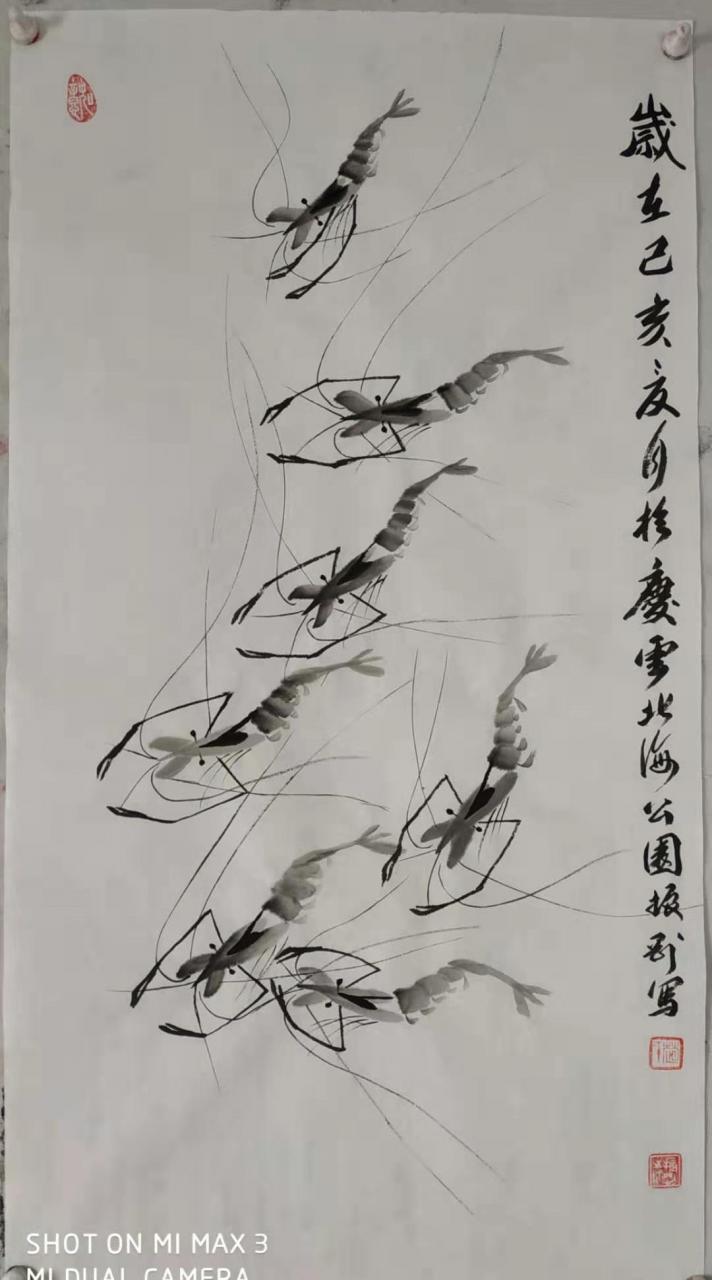 歲在己亥夏月於慶雲北海公園振剛寫
SHOT ON MI MAX 3
MI DUAL CAMERA